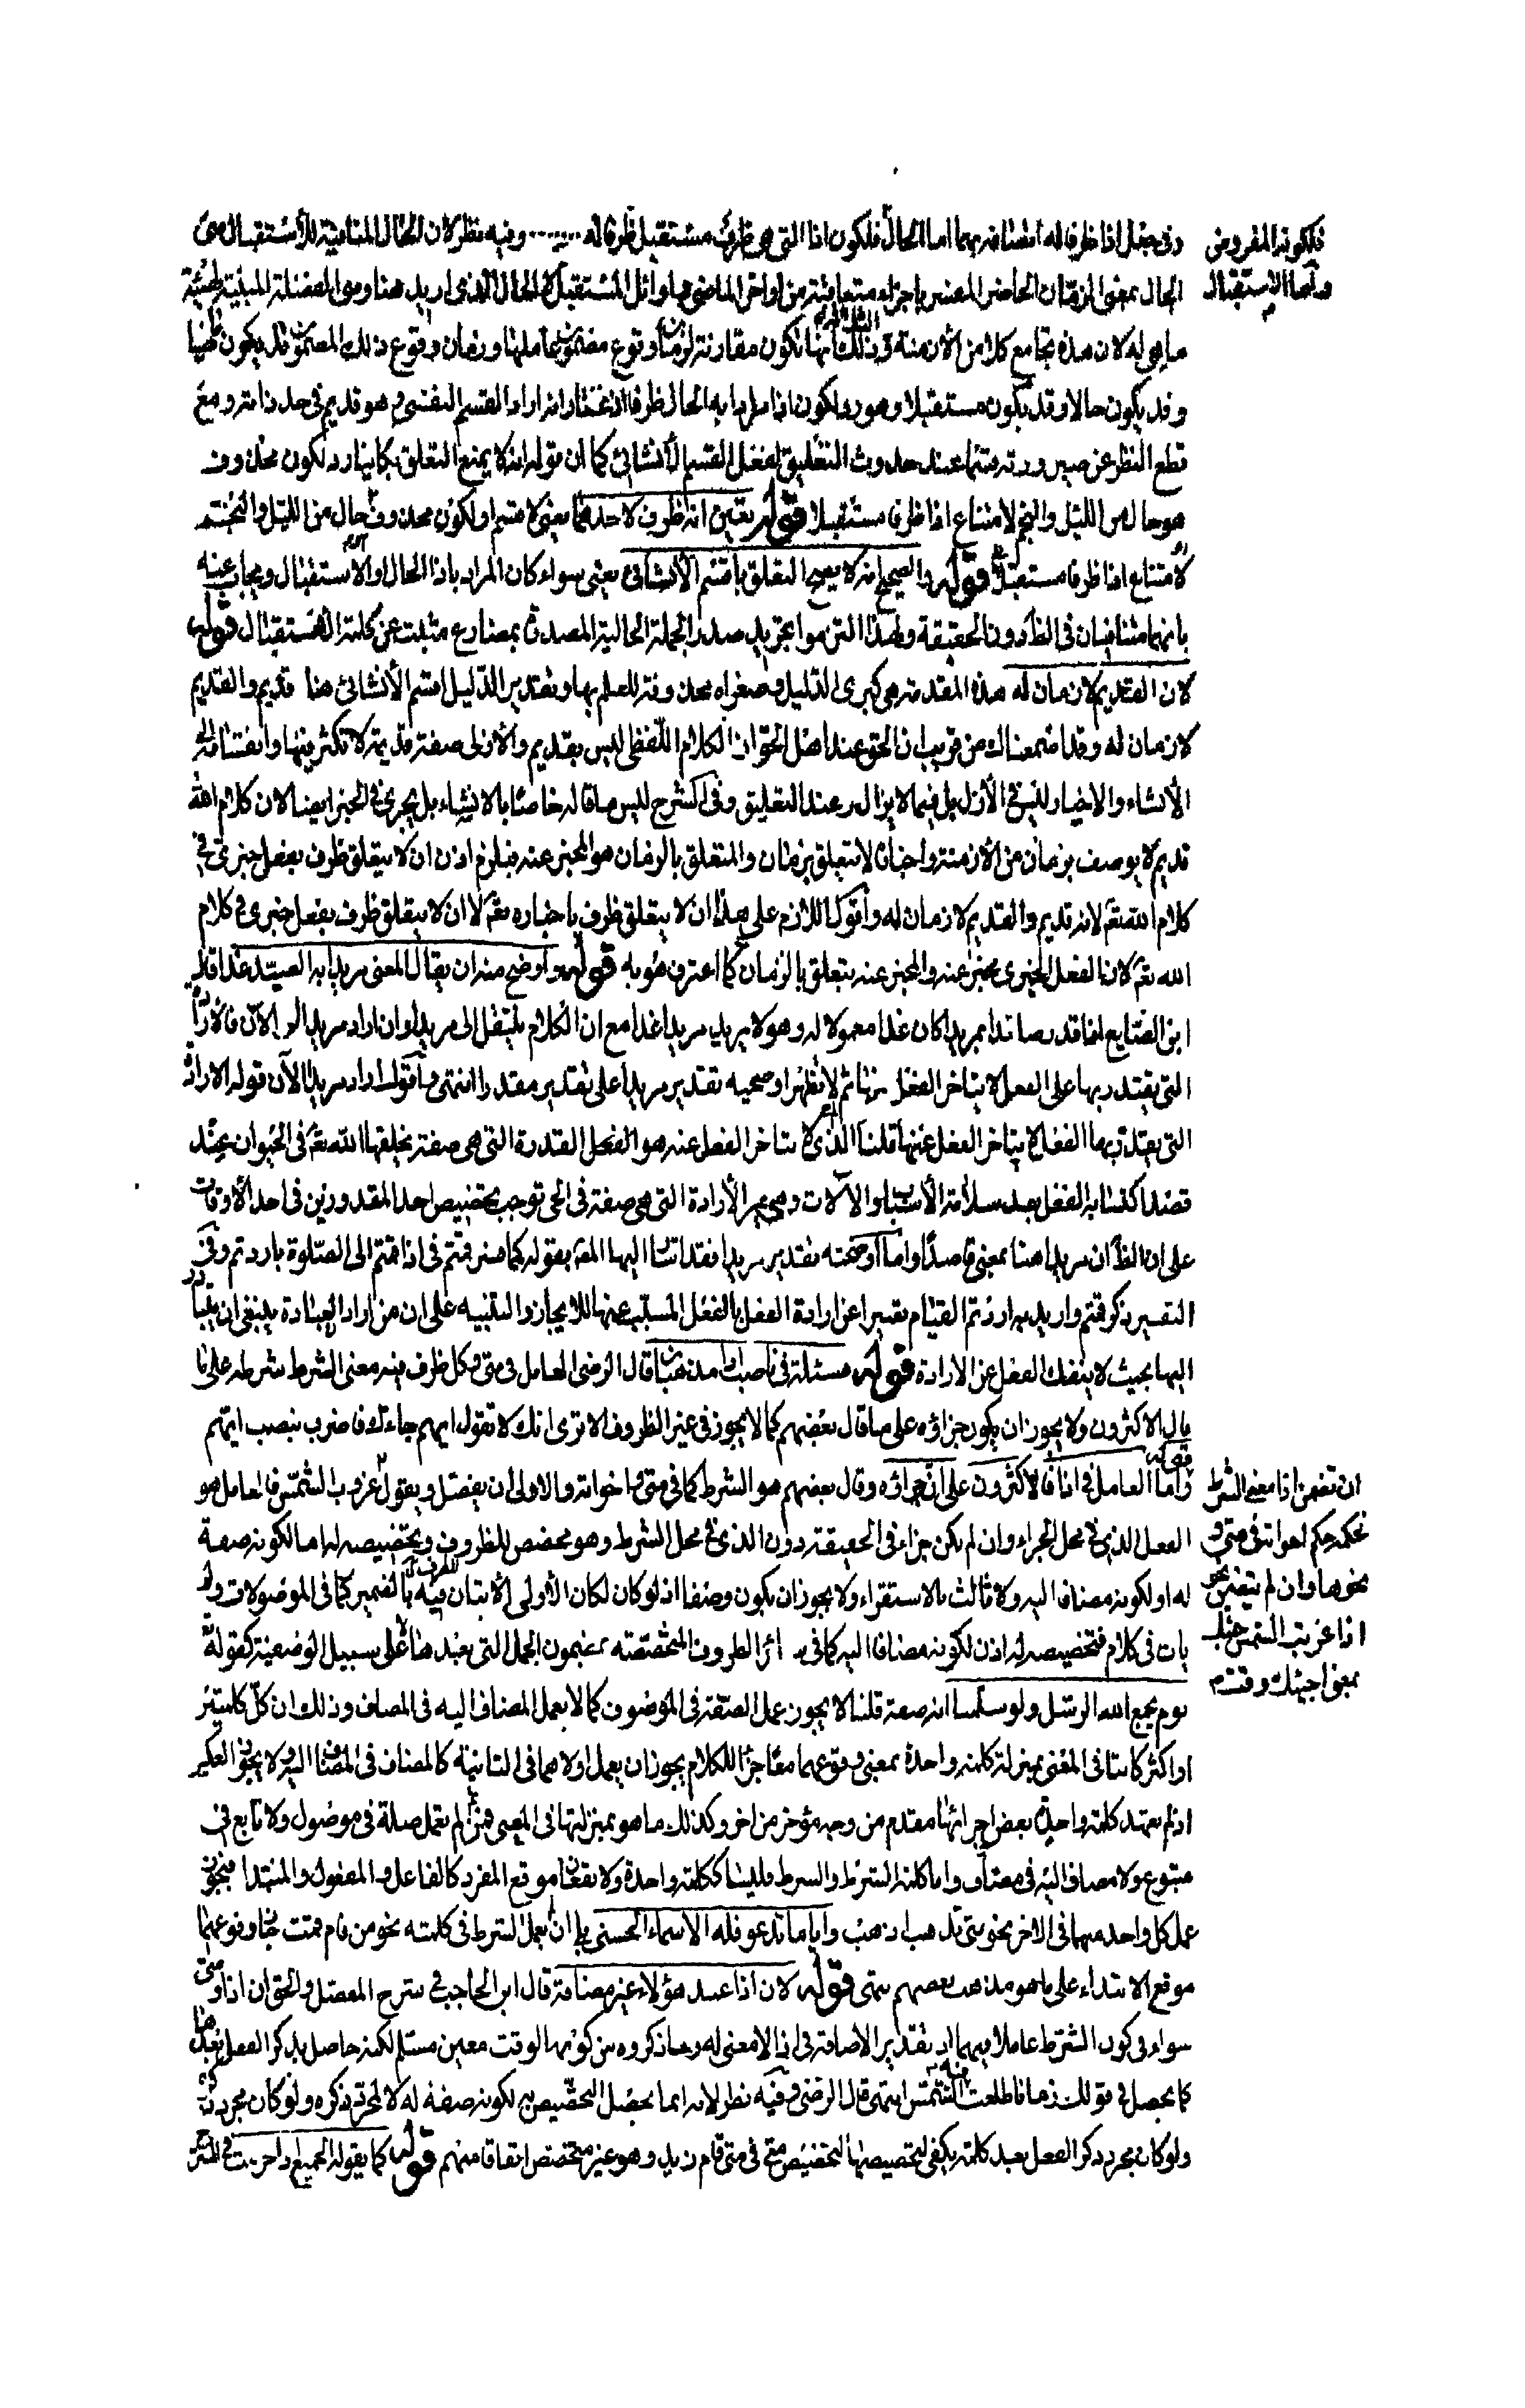 وفى جعل اذا ظرفا له اتصافه بهما اما الحال فلكون اذا التى هى ظرف مستقبل ظرفا له وفيه نظر لان الحال المنافية للاستقبال هى
الحال بمعنى الزمان الحاضر المفسر باجزاء متعاقبة من اواخر الماضى واوائل المستقبل لا الحال الذى اريد هنا وهى الفضلة المبينة لهيئة
ما هى له لان هذه تجامع كلا من الازمنة وذلك انها تكون مقارنة لزمان وقوع مضمون عاملها وزمان وقوع ذلك المضمون قد يكون ماضيا
وقد يكون حالا وقد يكون مستقبلا وهو
قطع النظر عن صيرورته عند حدوث التعليق لفعل القسم الانشائى كما ان قوله انه لا يمنع التعلق بكاينا رد لكون محذوف
هو حال من الليل والنجم لامتناع اذا ظرفا مستقبلا قوله يتعين انه ظرف لاحدهما يعنى لاقسم او لكون محذوف حال من الليل والنجم
لامتناع اذا ظرفا مستقبلا قوله والصحيح انه لا يصح التعلق باقسم الانشائى يعنى سواء كان المراد باذا الحال او الاستقبال ويجاب عنه
بانهما متنافيان فى الظاهر دون الحقيقة ولهذا التزموا تجريد صدر الجملة الحالية المصدرة بمضارع مثبت عن كلمة الاستقبال قوله
لان القديم لا زمان له هذه المقدمة هى كبرى الدليل وصغراه محذوفة للعلم بها وتقدير الدليل اقسم الانشائى هنا قديم والقديم
لا زمان له وقد اسمعناك من قريب ان الحق عند اهل الحق ان الكلام اللفظى ليس بقديم والازلى صفة قديمة لا تكثر فيها وانقسامه الى
الانشاء والاخبار ليس فى الازل بل فيما لا يزال عند التعليق وفى الشرح ليس ما قاله خاصا بالانشاء بل يجرى فى الخبر ايضا لان كلام الله
قديم لا يوصف بزمان من الازمنة واخباره لا يتعلق بزمان والمتعلق بالزمان هو المخبر عنه فيلزم اذن ان لا يتعلق ظرف بفعل خبرى فى
كلام الله تع لانه قديم والقديم لا زمان له واقول اللازم على هذا ان لا يتعلق ظرف باخباره تع لا ان لا يتعلق ظرف بفعل خبرى فى كلام
الله تع لان الفعل الخبرى مخبر عنه والمخبر عنه يتعلق بالزمان كما اعترف هو به قوله واوضح منه ان يقال المعنى مريدا به الصيد غدا قال
ابن الصايع اذا قدر صائدا بمريدا كان غدا معمولا له وهو لا يريد مريدا غدا مع ان الكلام ينتقل الى مريدا وان اراد مريدا الآن فالارادة
التى يقتدر بها على الفعل لا يتاخر الفعل عنها ثم لا يظهر اوضحية تقدير مريدا على تقدير مقدرا انتهى واقول اراد مريدا الآن قوله الارادة
التى يقتدر بها الفعل لا يتاخر الفعل عنها قلنا الذى لا يتاخر الفعل عنه هو الفعل القدرة التى هى صفة يخلقها الله تع فى الحيوان عند
قصد اكتسابه الفعل بعد سلامة الاسباب والآلات وهى غير الارادة التى هى صفة فى الحى توجب تخصيص احد المقدورين فى احد الاوقات
على ان الظ ان مريدا هنا بمعنى قاصدا واما اوضحية تقدير مريدا فقد اشار اليها المص بقوله كما فسر قمتم فى اذا قمتم الى الصلوة باردتم وفى
التفسير ذكر قمتم واريد به اردتم القيام تعبيرا عن ارادة الفعل بالفعل المسبب عنها للايجاز والتنبيه على ان من اراد العبادة ينبغى ان يبادر
اليها بحيث لا ينفك الفعل عن الارادة قوله مسئلة فى ناصب اذا مذهبان قال الرضى العامل فى متى وكل ظرف فيه معنى الشرط شرطه على ما
قال الاكثرون ولا يجوز ان يكون جزاؤه على ما قال بعضهم كما لا يجوز فى غير الظروف الا ترى انك لا تقول ايهم جاءك فاضرب بنصب ايهم
واما العامل فى اذا فالاكثرون على انه جزاؤه وقال بعضهم هو الشرط كما فى متى واخواته والاولى ان يفصل ويقول
الفعل الذى فى محل الجزاء وان لم يكن جزاء فى الحقيقة دون الذى فى محل الشرط وهو مخصص للظروف وتخصيصه له اما لكونه صفة
له او لكونه مضافا اليه ولا ثالث بالاستقراء ولا يجوز ان يكون وصفا اذ لو كان لكان الاولى الاتيان فيه بالضمير كما فى الموصولات ولم
يات فى كلام فتخصيصه له اذن لكونه مضافا اليه كما فى سائر الظروف المتخصصة بمضمون الجمل التى بعدها على سبيل الوضعية كقوله تع
يوم يجمع الله الرسل ولو سلمنا انه صفة قلنا لا يجوز عمل الصفة فى الموصوف كما لا يعمل المضاف اليه فى المضاف وذلك ان كل كلمتين
او اكثر كانتا فى المعنى بمنزلة كلمة واحدة بمعنى وقوعهما معا جزء الكلام يجوز ان يعمل اولاهما فى الثانية كالمضاف فى المضاف اليه ولا يجوز العكس
اذ لم يعهد كلمة واحدة بعض اجزائها مقدم من وجه مؤخر من اخر وكذلك ما هو بمنزلتها فى المعنى فمن ثم لم يعمل صلة فى موصول ولا تابع فى
متبوع ولا مضاف اليه فى مضاف واما كلمة الشرط والشرط فليستا ككلمة واحدة ولا يقعان موقع المفرد كالفاعل والمفعول والمبتدا فيجوز
عمل كل واحد منهما فى الاخر نحو متى تذهب اذهب وايا ما تدعو فله الاسماء الحسنى بلى ان يعمل الشرط فى كلمته نحو من قام قمت جاز وقوعها
موقع الابتداء على ما هو مذهب بعضهم قوله لان اذا عند هؤلاء غير مضافة قال ابن الحاجب فى شرح المفصل والحق ان اذا ومتى
سواء فى كون الشرط عاملا فيهما اذ تقدير الاضافة فى اذا لا معنى له وما ذكروه من كونها لوقت معين مسلم لكنه حاصل بذكر الفعل بعدها
كما يحصل فى قولك زمانا طلعت فيه الشمس انتهى قال الرضى وفيه نظر لانه انما يحصل التخصيص به لكونه صفة له لا لمجرد ذكره ولو كان مجرد
ولو كان مجرد ذكر الفعل بعد كلمة يكفى لتخصيصها لتخصص متى فى متى قام زيد وهو غير مختصص اتفاقا منهم قوله كما يقوله الجميع اذا جزمت
فلكونه المفروض
واما الاستقبال
ان تضمن اذا معنى الشرط
فحكمه حكم اخواته فى متى و
نحوها وان لم يتضمن نحو
اذا غربت الشمس جئتك
بمعنى اجيئك وقت